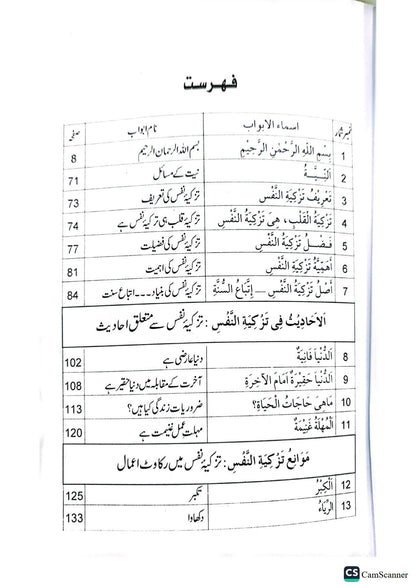 فہرست
نمبر شمار اسماء الابواب نام ابواب صفحہ
1 بِسْمِ اللّٰهِ الرَّحْمٰنِ الرَّحِيْمِ بسم اللہ الرحمان الرحیم 8
2 اَلنِّيَّةُ نیت کے مسائل 71
3 تَعْرِيْفُ تَزْكِيَةِ النَّفْسِ تزکیۂ نفس کی تعریف 73
4 تَزْكِيَةُ الْقَلْبِ ، هِيَ تَزْكِيَةُ النَّفْسِ تزکیۂ قلب ہی تزکیۂ نفس ہے 74
5 فَضْلُ تَزْكِيَةِ النَّفْسِ تزکیۂ نفس کی فضیلت 77
6 اَهَمِّيَّةُ تَزْكِيَةِ النَّفْسِ تزکیۂ نفس کی اہمیت 81
7 اَصْلُ تَزْكِيَةِ النَّفْسِ ـــ اِتِّبَاعُ السُّنَّةِ تزکیۂ نفس کی بنیاد --- اتباع سنت 84
اَلْاَحَادِيْثُ فِيْ تَزْكِيَةِ النَّفْسِ : تزکیۂ نفس سے متعلق احادیث
8 اَلدُّنْيَا فَانِيَةٌ دنیا عارضی ہے 102
9 اَلدُّنْيَا حَقِيْرَةٌ اَمَامَ الْآخِرَةِ آخرت کے مقابلہ میں دنیا حقیر ہے 108
10 مَا هِيَ حَاجَاتُ الْحَيَاةِ؟ ضروریات زندگی کیا ہیں؟ 113
11 اَلْمُهْلَةُ غَنِيْمَةٌ مہلت عمل غنیمت ہے 120
مَوَانِعُ تَزْكِيَةِ النَّفْسِ : تزکیۂ نفس میں رکاوٹ اعمال
12 اَلْكِبْرُ تکبر 125
13 اَلرِّيَاءُ دکھاوا 133
CS CamScanner